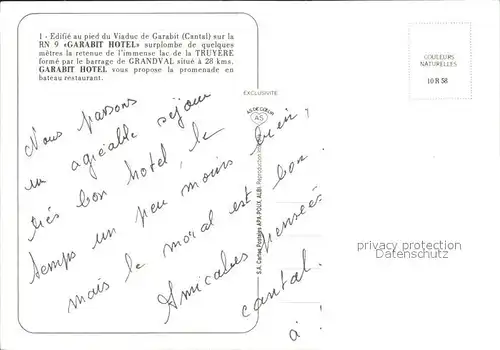 1 - Edifié au pied du Viaduc de Garabit (Cantal) sur la
RN 9 «GARABIT HOTEL» surplombe de quelques
mètres la retenue de l'immense lac de la TRUYERE
formé par le barrage de GRANDVAL situé à 28 kms.
GARABIT HOTEL vous propose la promenade en
bateau restaurant.
EXCLUSIVITE
AS DE CŒUR
AS
S.A. Cartes Postales APA-POUX, ALBI
COULEURS
NATURELLES
10 R 58
Nous passons
un agréable séjour
très bon hotel, le
temps un peu moins bien,
mais le moral est bon.
Amicales pensées
cantal.
à
privacy protection
Datenschutz